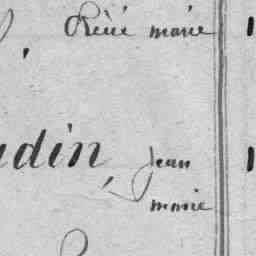 Réné marie
udin, Jean
marie